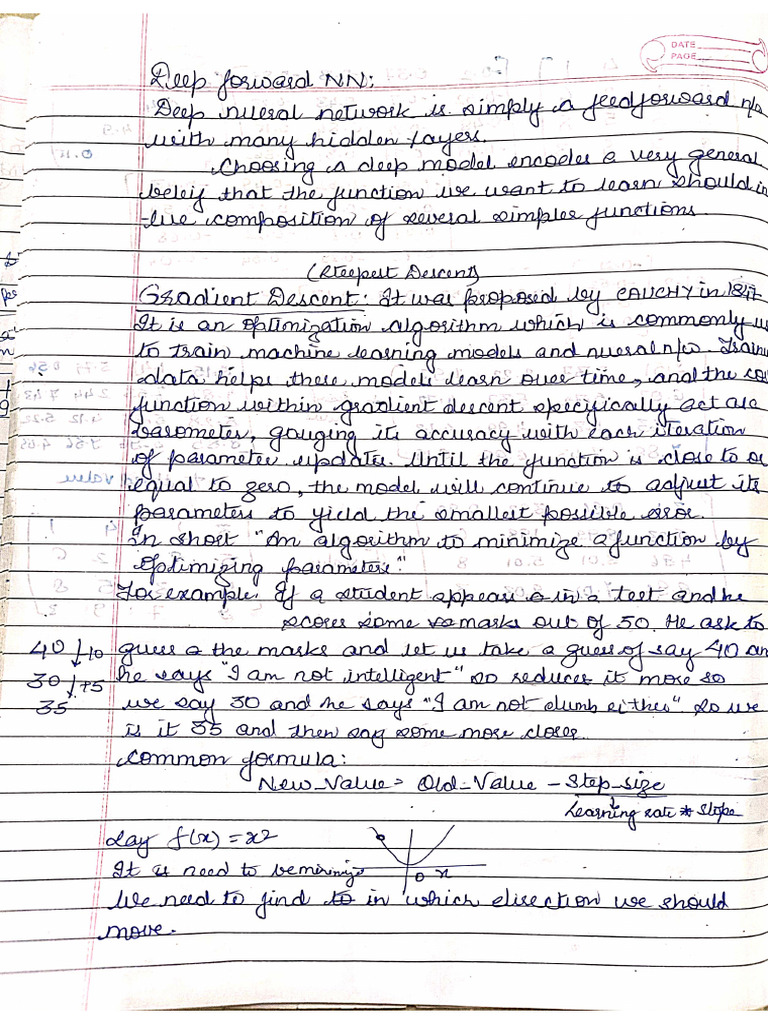 DATE
PAGE
Deep forward NN:
Deep nueral network is simply a feedforward n/w
with many hidden layers.
Choosing a deep model encodes a very general
beleif that the function we want to learn should in
-lve composition of several simpler functions.
(Steepest Descent)
Gradient Descent: It was proposed by CAUCHY in 1847
It is an optimization algorithm which is commonly u
to train machine learning models and nueral n/w. Train
data helps these models learn over time, and the cos
function within gradient descent specifically act as a
barometer, gauging its accuracy with each iteration
of parameter updates. Until the function is close to or
equal to zero, the model will continue to adjust its
parameters to yield the smallest possible error.
In short "An algorithm to minimize a function by
optimizing parameters."
For example. If a student appears in a test and he
scores some marks out of 50. He ask to
40 ↓-10 guess the marks and let us take a guess of say 40 an
30 ↓+5 he says "I am not intelligent" so reduces it more so
35 we say 30 and he says "I am not dumb either" so we
is it 35 and then say some more closer.
Common formula:
New_Value = Old_Value - Step_size
Learning rate * Slope
Say f(x) = x²
It is need to be
0 x
We need to find to in which direction we should
move.